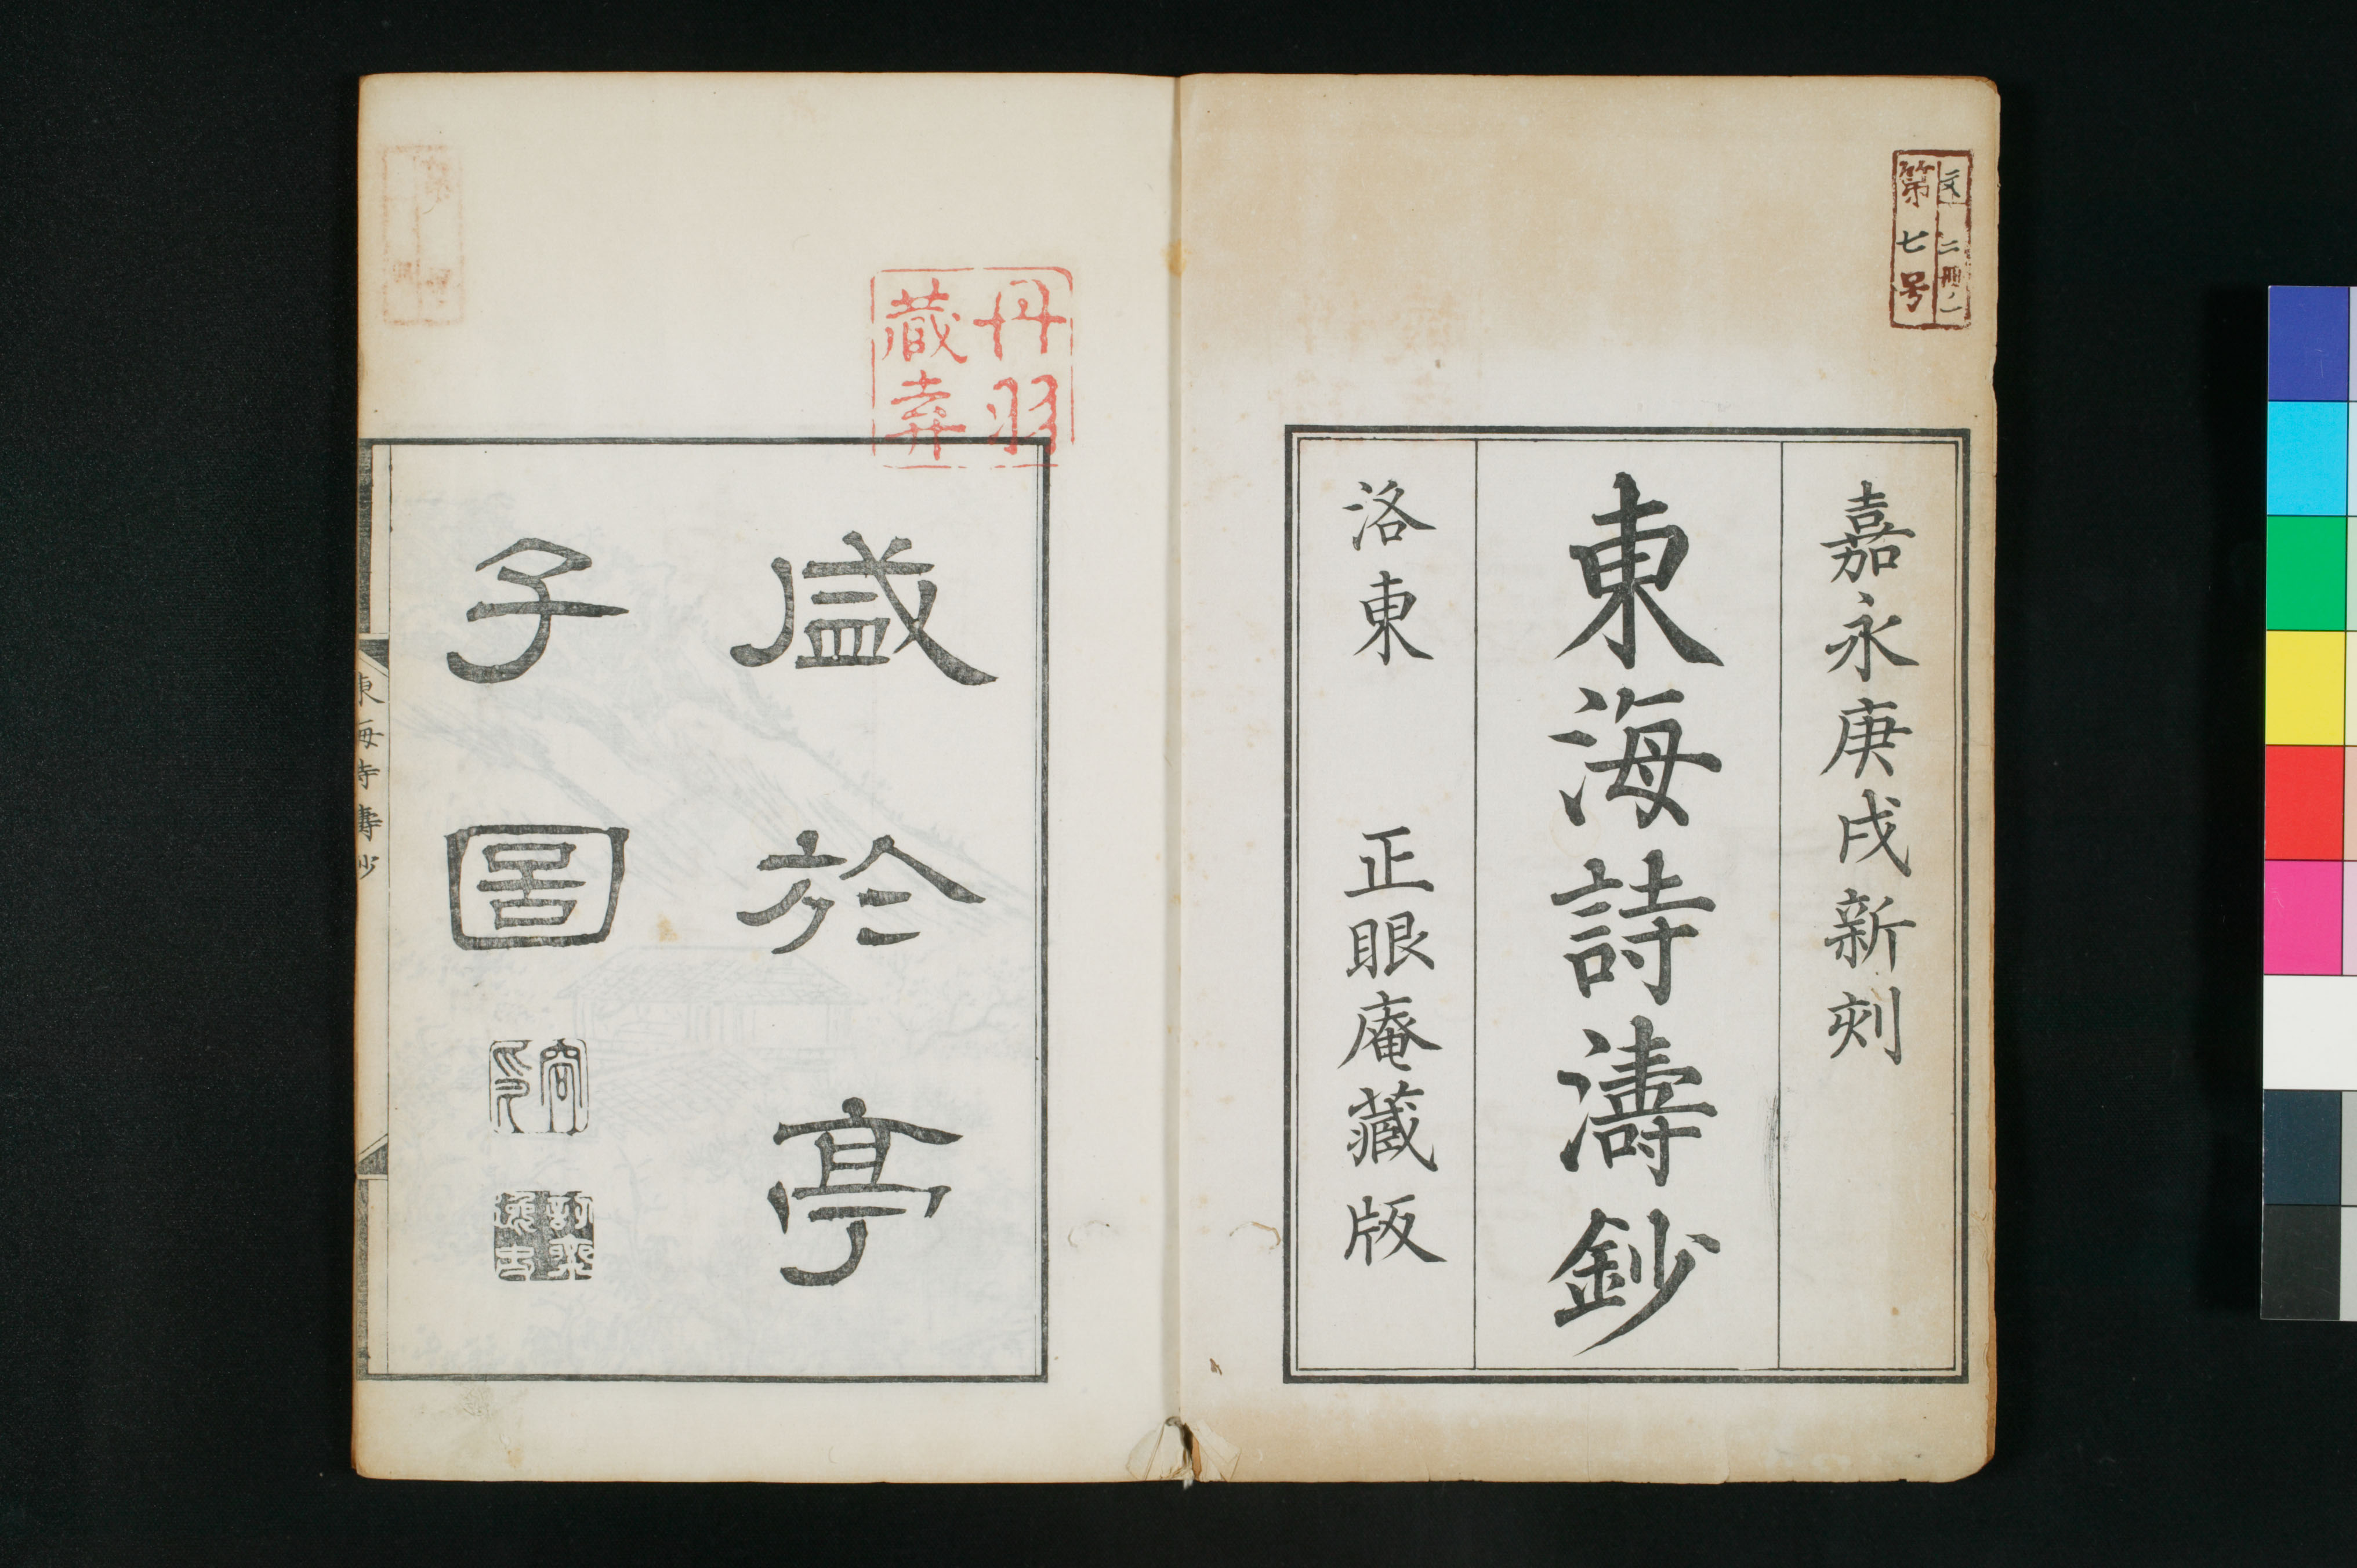 文 二冊ノ一
第七号
嘉永庚戌新刻
東海詩濤鈔
洛東 正眼庵藏版
丹羽
藏弆
盛於亭
子圖
東海詩濤鈔